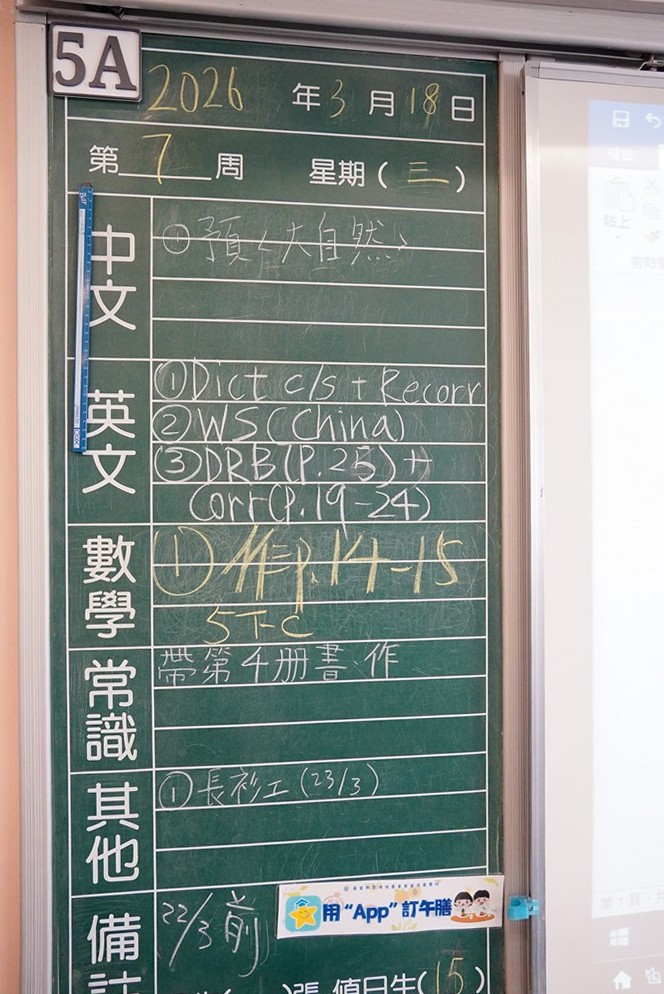 5A
2026 年 3 月 18 日
第 7 周 星期 ( 三 )
中文
① 預〈大自然〉
英文
① Dict c/s + Recorr
② WS (China)
③ DRB (P.25) +
Corr (P.19-24)
數學
① 作P.14-15
5T-C
常識
帶第4册書、作
其他
① 長衫工 (23/3)
備註
22/3 前
用 “App” 訂午膳
張 值日生 ( 15 )
貼上